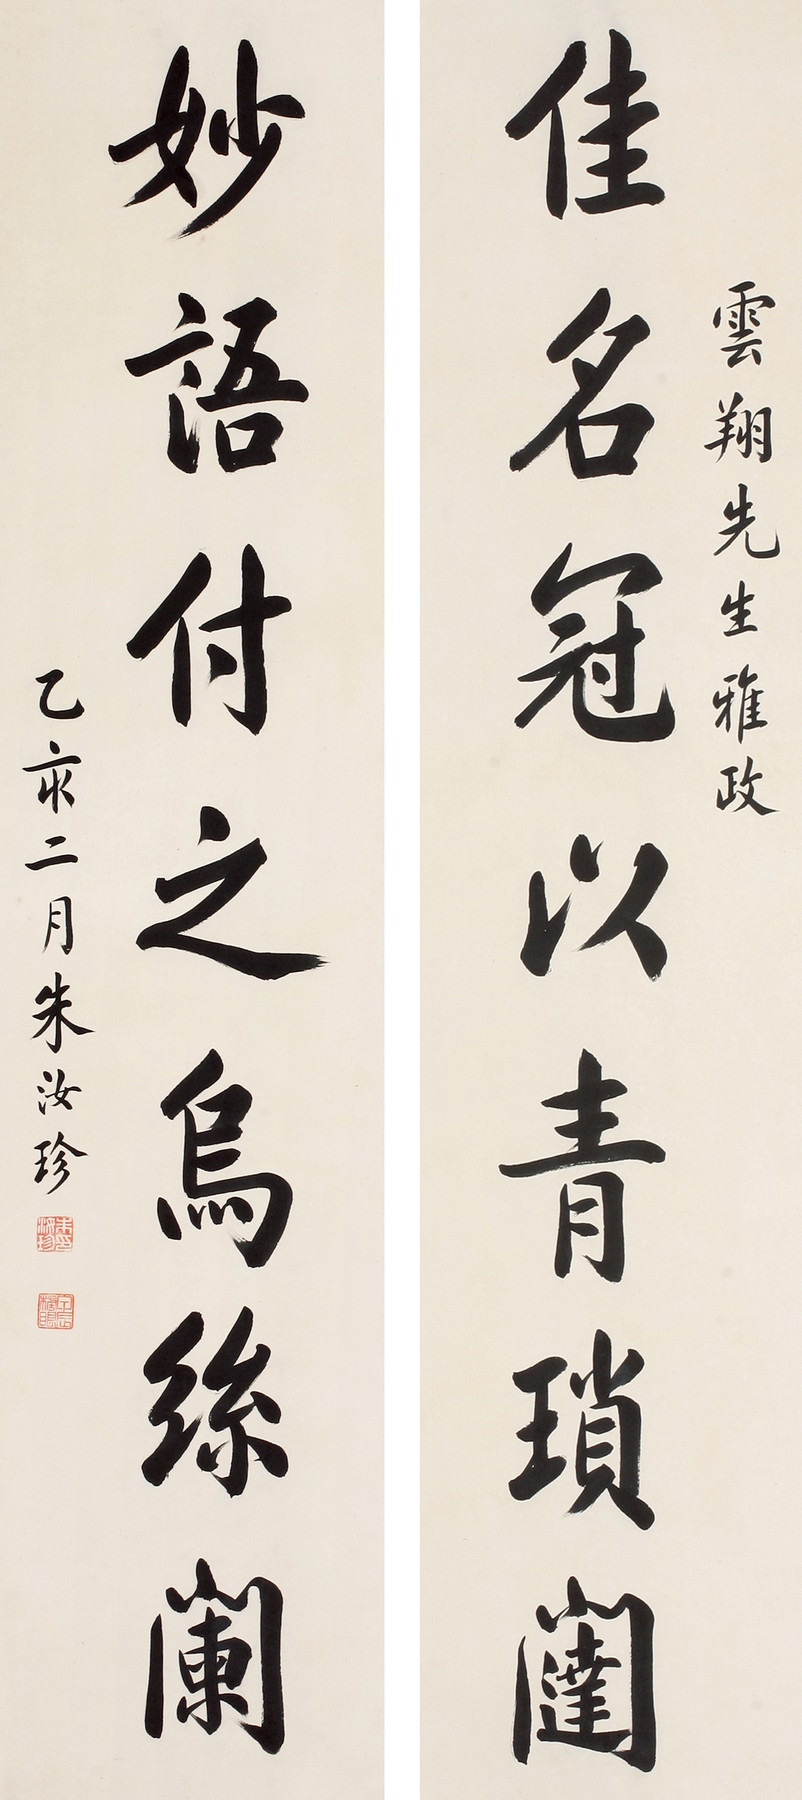 佳名冠以青瑣闥
雲翔先生雅政
妙語付之烏絲闌
乙亥二月朱汝珍
朱汝珍印
甲辰榜眼